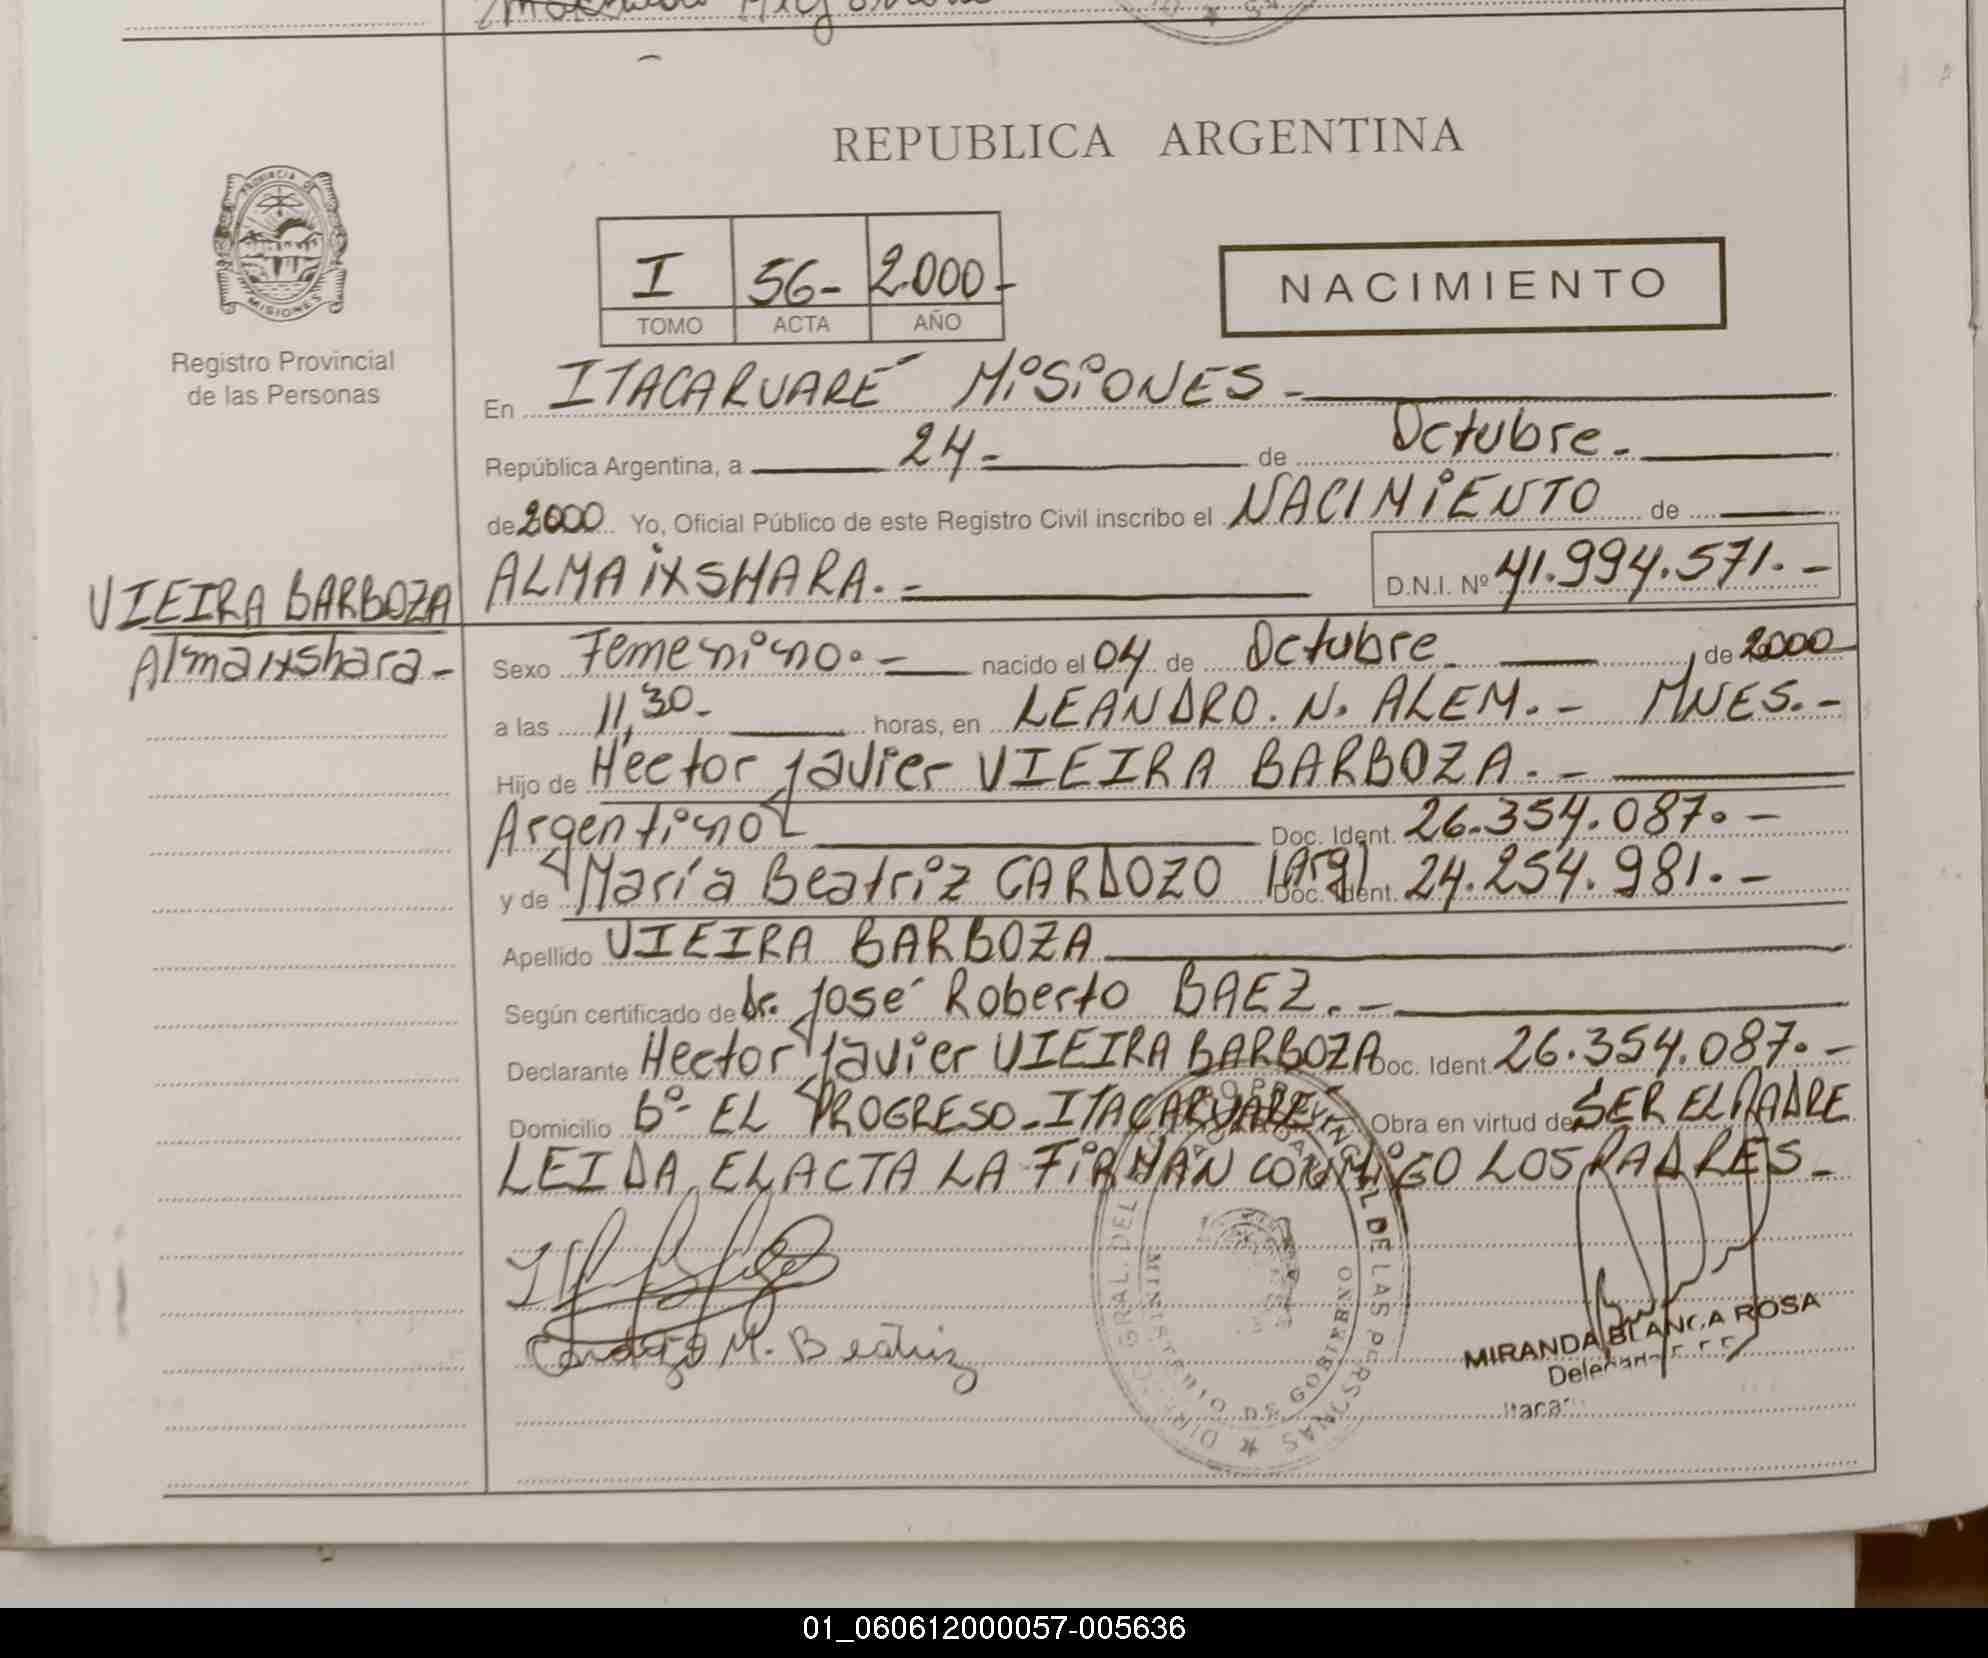 REPUBLICA ARGENTINA
PROVINCIA DE
MISIONES
Registro Provincial
de las Personas
I 56- 2.000-
TOMO ACTA AÑO
NACIMIENTO
En ITACARUARÉ MISIONES -
República Argentina, a 24- de Octubre.-
de 2000 Yo, Oficial Público de este Registro Civil inscribo el NACIMIENTO de
ALMAIXSHARA.- D.N.I. Nº 41.994.571.-
VIEIRA BARBOZA
Almaixshara-
Sexo Femenino.- nacido el 04 de Octubre. de 2000
a las 11,30- horas, en LEANDRO. N. ALEM.- MNES.-
Hijo de Hector Javier VIEIRA BARBOZA.-
Argentino Doc. Ident. 26.354.087.-
y de María Beatriz CARDOZO (Arg) Doc. Ident. 24.254.981.-
Apellido VIEIRA BARBOZA
Según certificado de Dr. José Roberto BAEZ.-
Declarante Hector Javier VIEIRA BARBOZA Doc. Ident. 26.354.087.-
Domicilio Bº EL PROGRESO-ITACARUARÉ Obra en virtud de SER EL PADRE
LEIDA EL ACTA LA FIRMAN CONMIGO LOS PADRES-
Cardozo M. Beatriz
MINISTERIO DE GOBIERNO
MIRANDA BLANCA ROSA
01_060612000057-005636